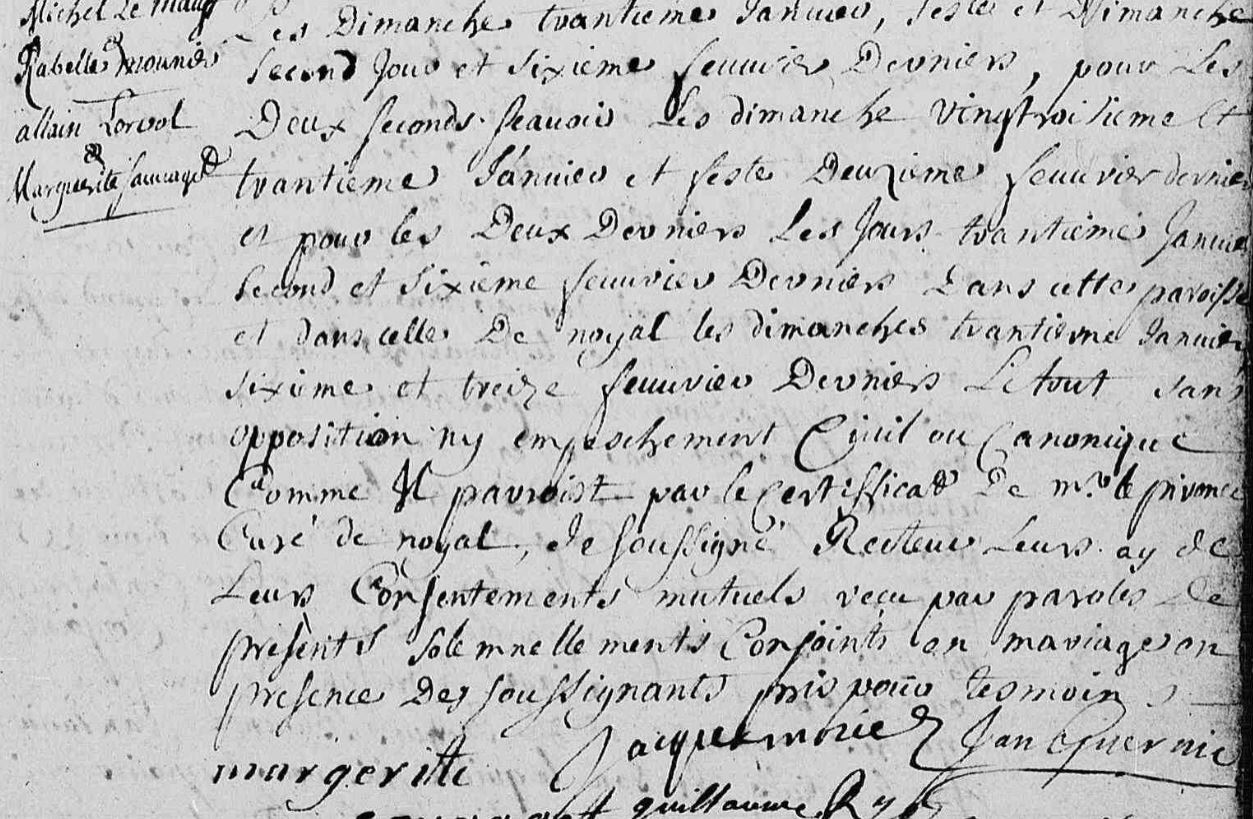 Michel Le
Rabelle mounier
allain Lorvol
Marguerite sauvage
Les Dimanche trantieme Janvier, feste et Dimanche
second Jour et sixieme feuvrier Derniers, pour Les
Deux seconds scavoir Les dimanche vingtroisieme Et
trantieme Janvier et feste Deuzieme feuvrier dernier
et pour les Deux Derniers Les Jours trantieme Janvier
second et sixieme feuvrier Derniers Dans cette paroisse
et dans celle De noyal les dimanches trantieme Janvier
sixieme et treize feuvrier Derniers Le tout sans
opposition ny empeschement Civil ou Canonique
Comme Il parroist par le Certifficat De mr. le
Curé de noyal, Je soussigné Recteur Leurs ay de
Leurs Consentements mutuels recu par paroles De
presents solemnellements Conjoints en mariage en
presence Des soussignants pris pour tesmoin
margeritte Jacque morice Jan Guernic
guillaume